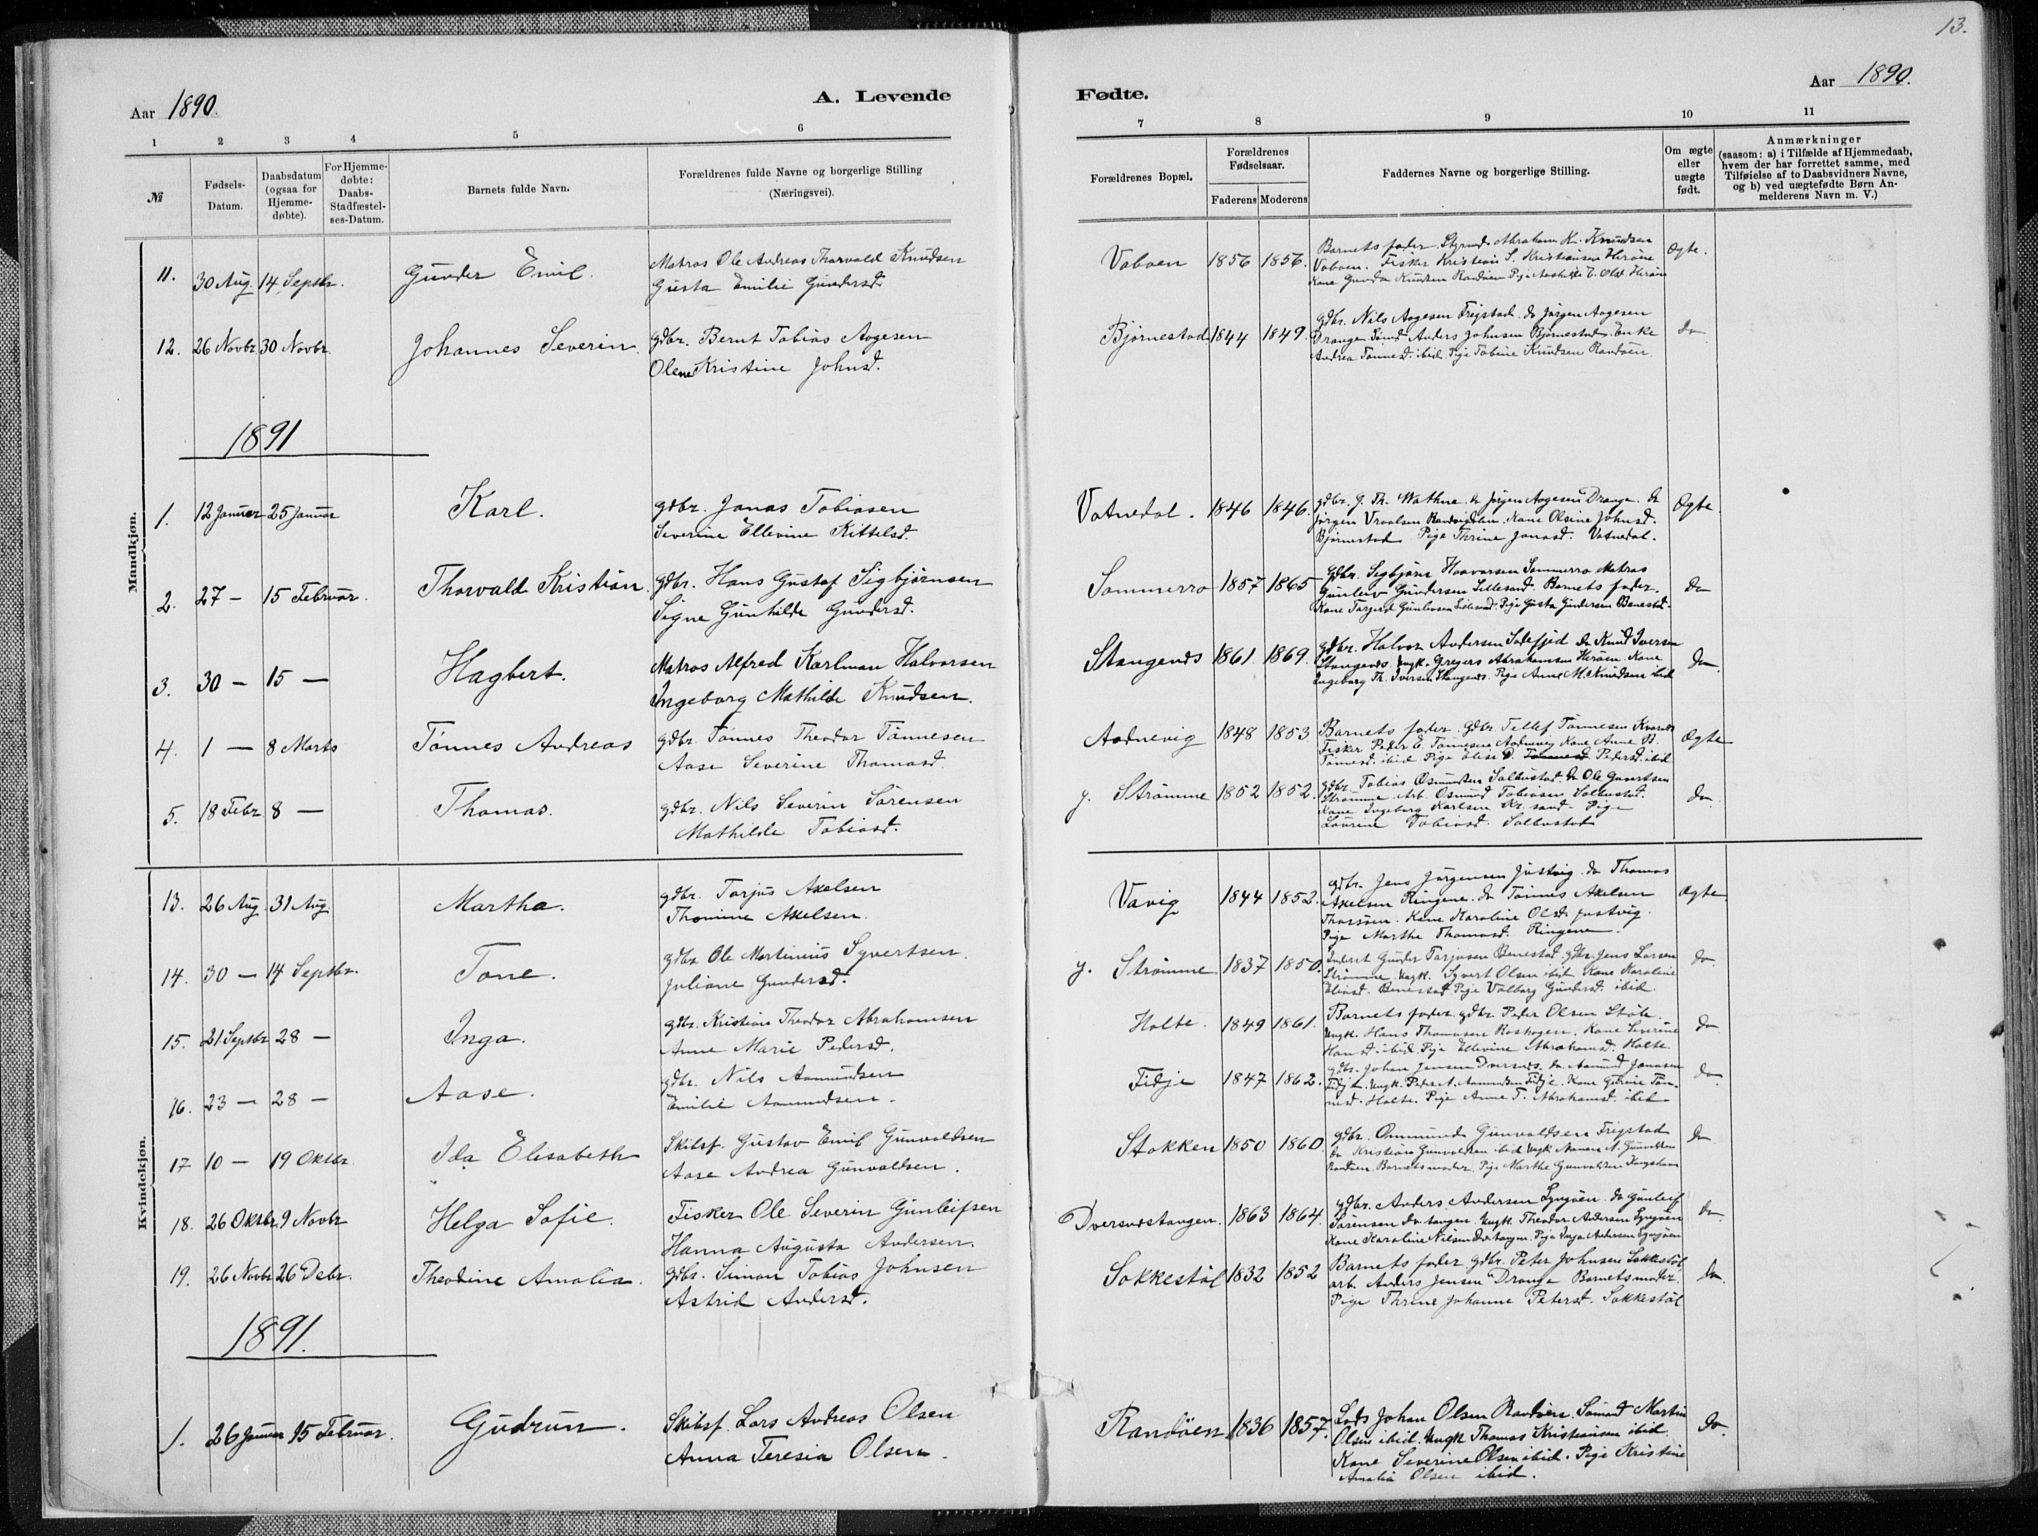 13.
Aar 1890.
A. Levende
Fødte.
Aar 1890.
1 2 3 4 5 6
7 8 9 10 11
№
Fødsels-
Datum.
Daabsdatum
(ogsaa for
Hjemme-
døbte).
For Hjemme-
døbte:
Daabs-
Stadfæstel-
ses-Datum.
Barnets fulde Navn.
Forældrenes fulde Navne og borgerlige Stilling
(Næringsvei).
Forældrenes Bopæl.
Forældrenes
Fødselsaar.
Faderens Moderens
Faddernes Navne og borgerlige Stilling.
Om ægte
eller
uægte
født.
Anmærkninger
(saasom: a) i Tilfælde af Hjemmedaab,
hvem der har forrettet samme, med
Tilføielse af to Daabsvidners Navne,
og b) ved uægtefødte Børn An-
melderens Navn m. V.)
Mandkjøn.
11. 30 Aug. 14 Septbr. Gunder Emil.
Matros Ole Andreas Thorvald Knudsen
Gusta Emilie Gundersd.
Vaboen 1856 1856.
Barnets fader. Styrmd Abraham K. Knudsen
Vaboen. Fisker Kristian S. Kristiansen Herøen
Kone Gunda Knudsen Randøen Pige
Ægte.
12. 26 Novbr 30 Novbr Johannes Severin.
gdbr. Bernt Tobias Aagesen
Olene Kristine Johnsd.
Bjørnestad 1844 1849.
gdbr. Nils Aagesen Frigstad. do Jørgen Aagesen
Drange Tømd Anders Johnsen Bjørnestad. Enke
Andrea Tønnesd. ibid. Pige Tobine Knudsen Randøen.
do
1891
1. 12 Januar 25 Januar Karl.
gdbr. Jonas Tobiasen
Severine Ellevine Kittelsd.
Vatnedal. 1846 1846.
gdbr. G. Th. Wathne. do Jørgen Aagesen Drange. do
Jørgen Vroalsen Kone Olsine Johnsd.
Bjørnestad Pige Thrine Jonasd. Vatnedal.
Ægte.
2. 27 — 15 Februar. Thorvald Kristian.
gdbr. Hans Gustaf Sigbjørnsen
Signe Gunhilde Gundersd.
Sommerro 1857 1865
gdbr. Sigbjørn Haavorsen Sommerro Matros
Gunlev Gundersen Lillesand. Barnets fader.
Kone Torgerd Gunlevsen Lillesand. Pige Gusta Gundersen Benestad.
do
3. 30 — 15 — Hagbert.
Matros Alfred Karlman Halvorsen
Ingeborg Mathilde Knudsen.
Stangenes 1861 1869.
gdbr. Halvor Andersen do Knud Iversen
Stangenes. Ungk. Gregers Abrahamsen Herøen. Kone
Ingeborg Th. Iversen Stangenes. Pige Anne M. Knudsen ibid
do.
4. 1 — 8 Marts Tönnes Andreas
gdbr. Tönnes Theodor Tönnesen
Aase Severine Thomasd.
Aadnevig 1848 1853
Barnets fader. gdbr Tellef Tönnesen
Fisker Peder E. Tönnesen Aadnevig Kone Anne B.
Tönnesd. ibid Pige Elise D. Pedersd. ibid
Ægte
5. 18 Febr 8 — Thomas.
gdbr. Nils Severin Sörensen
Mathilde Tobiasd.
y. Strømme 1852 1852.
gdbr. Tobias Osmundsen Salbustad. do Ole Gevertsen
Strømme. Arb. Osmund Tobiasen Salbustad.
Kone Ingeborg Karlsen Kr.sand. Pige
Laurine Tobiasd. Salbustad
do.
Kvindekjøn.
13. 26 Aug. 31 Aug. Martha.
gdbr. Tarjus Axelsen
Thomine Axelsen.
Vavig 1844 1852.
gdbr. Jens Jørgensen Justvig. do Thomas
Axelsen Ringene. do Tönnes Axelsen
Thorsöen. Kone Karoline Olsd. Justvig.
Pige Marthe Thomasd. Ringene.
Ægte
14. 30 — 14 Septbr. Tone.
gdbr Ole Martinius Syvertsen.
Juliane Gundersd.
y. Strømme 1837 1850.
Inderst Gunder Tarjusen Benestad. gdbr. Jens Larsen
Strømme. Ungk. Syvert Olsen ibid Kone Karoline
Eliasd. Benestad. Pige Valborg Gundersd. ibid.
do.
15. 21 Septbr 28 — Inga.
gdbr. Kristian Theodor Abrahamsen
Anne Marie Pedersd.
Holte. 1849 1861.
Barnets fader. gdbr. Peder Olsen Støle.
Ungk. Hans Thomasen Roshagen. Kone Severine
Hansd. ibid. Pige Ellevine Abrahamsd. Holte
do.
16. 23 — 28 — Aase.
gdbr. Nils Aamundsen
Emilie Aamundsen.
Fidje 1847 1862.
gdbr. Johan Jensen Dversnes. do Aamund Jonassen
Fidje. Ungk. Peder A. Aamundsen Fidje. Kone Gurine Tön-
nesd. Holte. Pige Anne T. Abrahamsd. ibid
do.
17 10 — 19 Oktbr. Ida Elisabeth
Skibsf. Gustav Emil Gunvaldsen
Aase Andrea Gunvaldsen.
Stokken 1850 1860.
gdbr. Ommund Gunvaldsen Frigstad
do Kristian Gunvaldsen ibid Ungk Nanen A. Gundersen
Randøen. Barnets moder. Pige Marthe Gunvaldsen
do
18. 26 Oktbr 9 Novbr Helga Sofie.
Fisker Ole Severin Gunleifsen
Hanna Augusta Andersen.
Dversnestangen. 1863 1864.
gdbr. Anders Andersen Lyngöen. do Gunleif
Sørensen Dv.tangen. Ungk. Theodor Andersen Lyngöen
Kone Karoline Nilsen Dv.tangen. Pige Inga Andersen Lyngöen
do.
19. 26 Novbr 26 Debr. Theodine Amalia.
gdbr. Simon Tobias Johnsen
Astrid Andersd.
Sokkestøl 1832 1852
Barnets fader gdbr. Peter Johnsen Sokkestøl
arb. Anders Jensen Drange Barnets moder.
Pige Thrine Johanne Petersd. Sokkestøl
do.
1891.
1. 26 Januar 15 Februar. Gudrun.
Skibsf. Lars Andreas Olsen
Anna Teresia Olsen.
Randøen. 1836 1857.
Lods Johan Olsen Randøen. Sømand Martin
Olsen ibid. Ungk Thomas Kristiansen ibid.
Kone Severine Olsen ibid. Pige Kristine
Amalia Olsen ibid.
do.